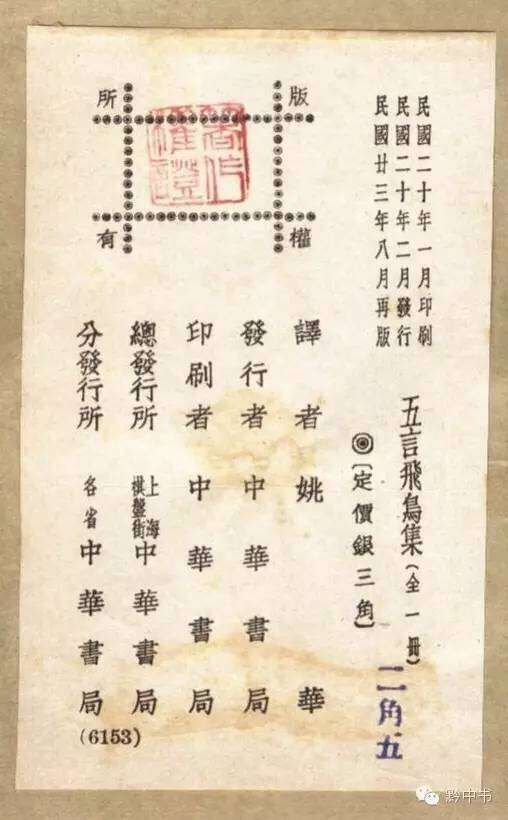 民國二十年一月印刷
民國二十年二月發行
民國廿三年八月再版
五言飛鳥集(全一冊)
◎〔定價銀三角〕
二角五
版權所有
譯者 姚華
發行者 中華書局
印刷者 中華書局
總發行所 上海棋盤街中華書局
分發行所 各省中華書局
(6153)
黔中书